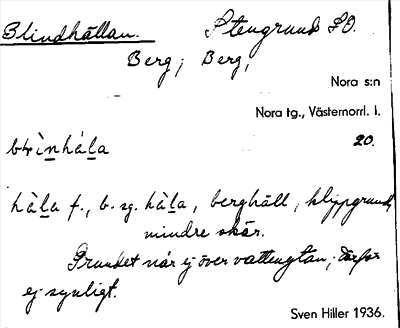 Blindhällan. Stengrund SO.
Berg; Berg,
Nora s:n
Nora tg., Västernorrl. l.
20.
hàl̲a f., b. sg. hàl̲a, berghäll, klippgrund,
mindre skär.
Grundet når ej över vattenytan, därför
ej synligt.
Sven Hiller 1936.